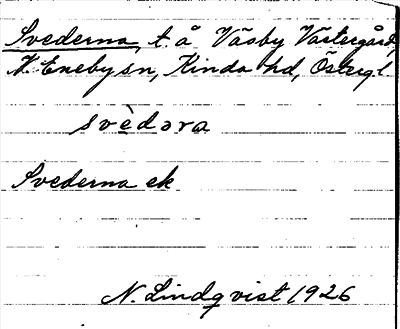 Svederna, t. å Väsby Västergård,
V. Eneby sn, Kinda hd, Östergl
svèdəra
Svederna ek
N. Lindqvist 1926